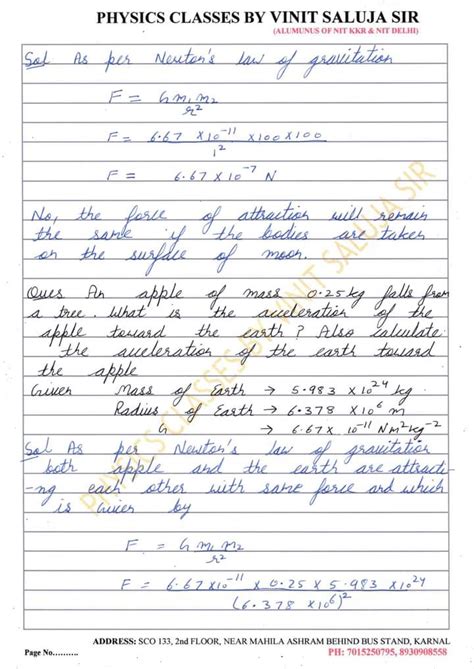 PHYSICS CLASSES BY VINIT SALUJA SIR
(ALUMUNUS OF NIT KKR & NIT DELHI)
Sol As per Newton's law of gravitation
F = G m₁ m₂
r²
F = 6.67 × 10⁻¹¹ × 100 × 100
1²
F = 6.67 × 10⁻⁷ N
No, the force of attraction will remain
the same if the bodies are taken
on the surface of moon.
Ques An apple of mass 0.25 kg falls from
a tree. What is the acceleration of the
apple toward the earth? Also calculate
the acceleration of the earth toward
the apple
Given Mass of Earth → 5.983 × 10²⁴ kg.
Radius of Earth → 6.378 × 10⁶ m
G → 6.67 × 10⁻¹¹ Nm²kg⁻²
Sol As per Newton's law of gravitation
both apple and the earth are attracti-
-ng each other with same force and which
is Given by
F = G m₁ m₂
r²
F = 6.67 × 10⁻¹¹ × 0.25 × 5.983 × 10²⁴
(6.378 × 10⁶)²
PHYSICS CLASSES BY VINIT SALUJA SIR
ADDRESS: SCO 133, 2nd FLOOR, NEAR MAHILA ASHRAM BEHIND BUS STAND, KARNAL
Page No.......... PH: 7015250795, 8930908558